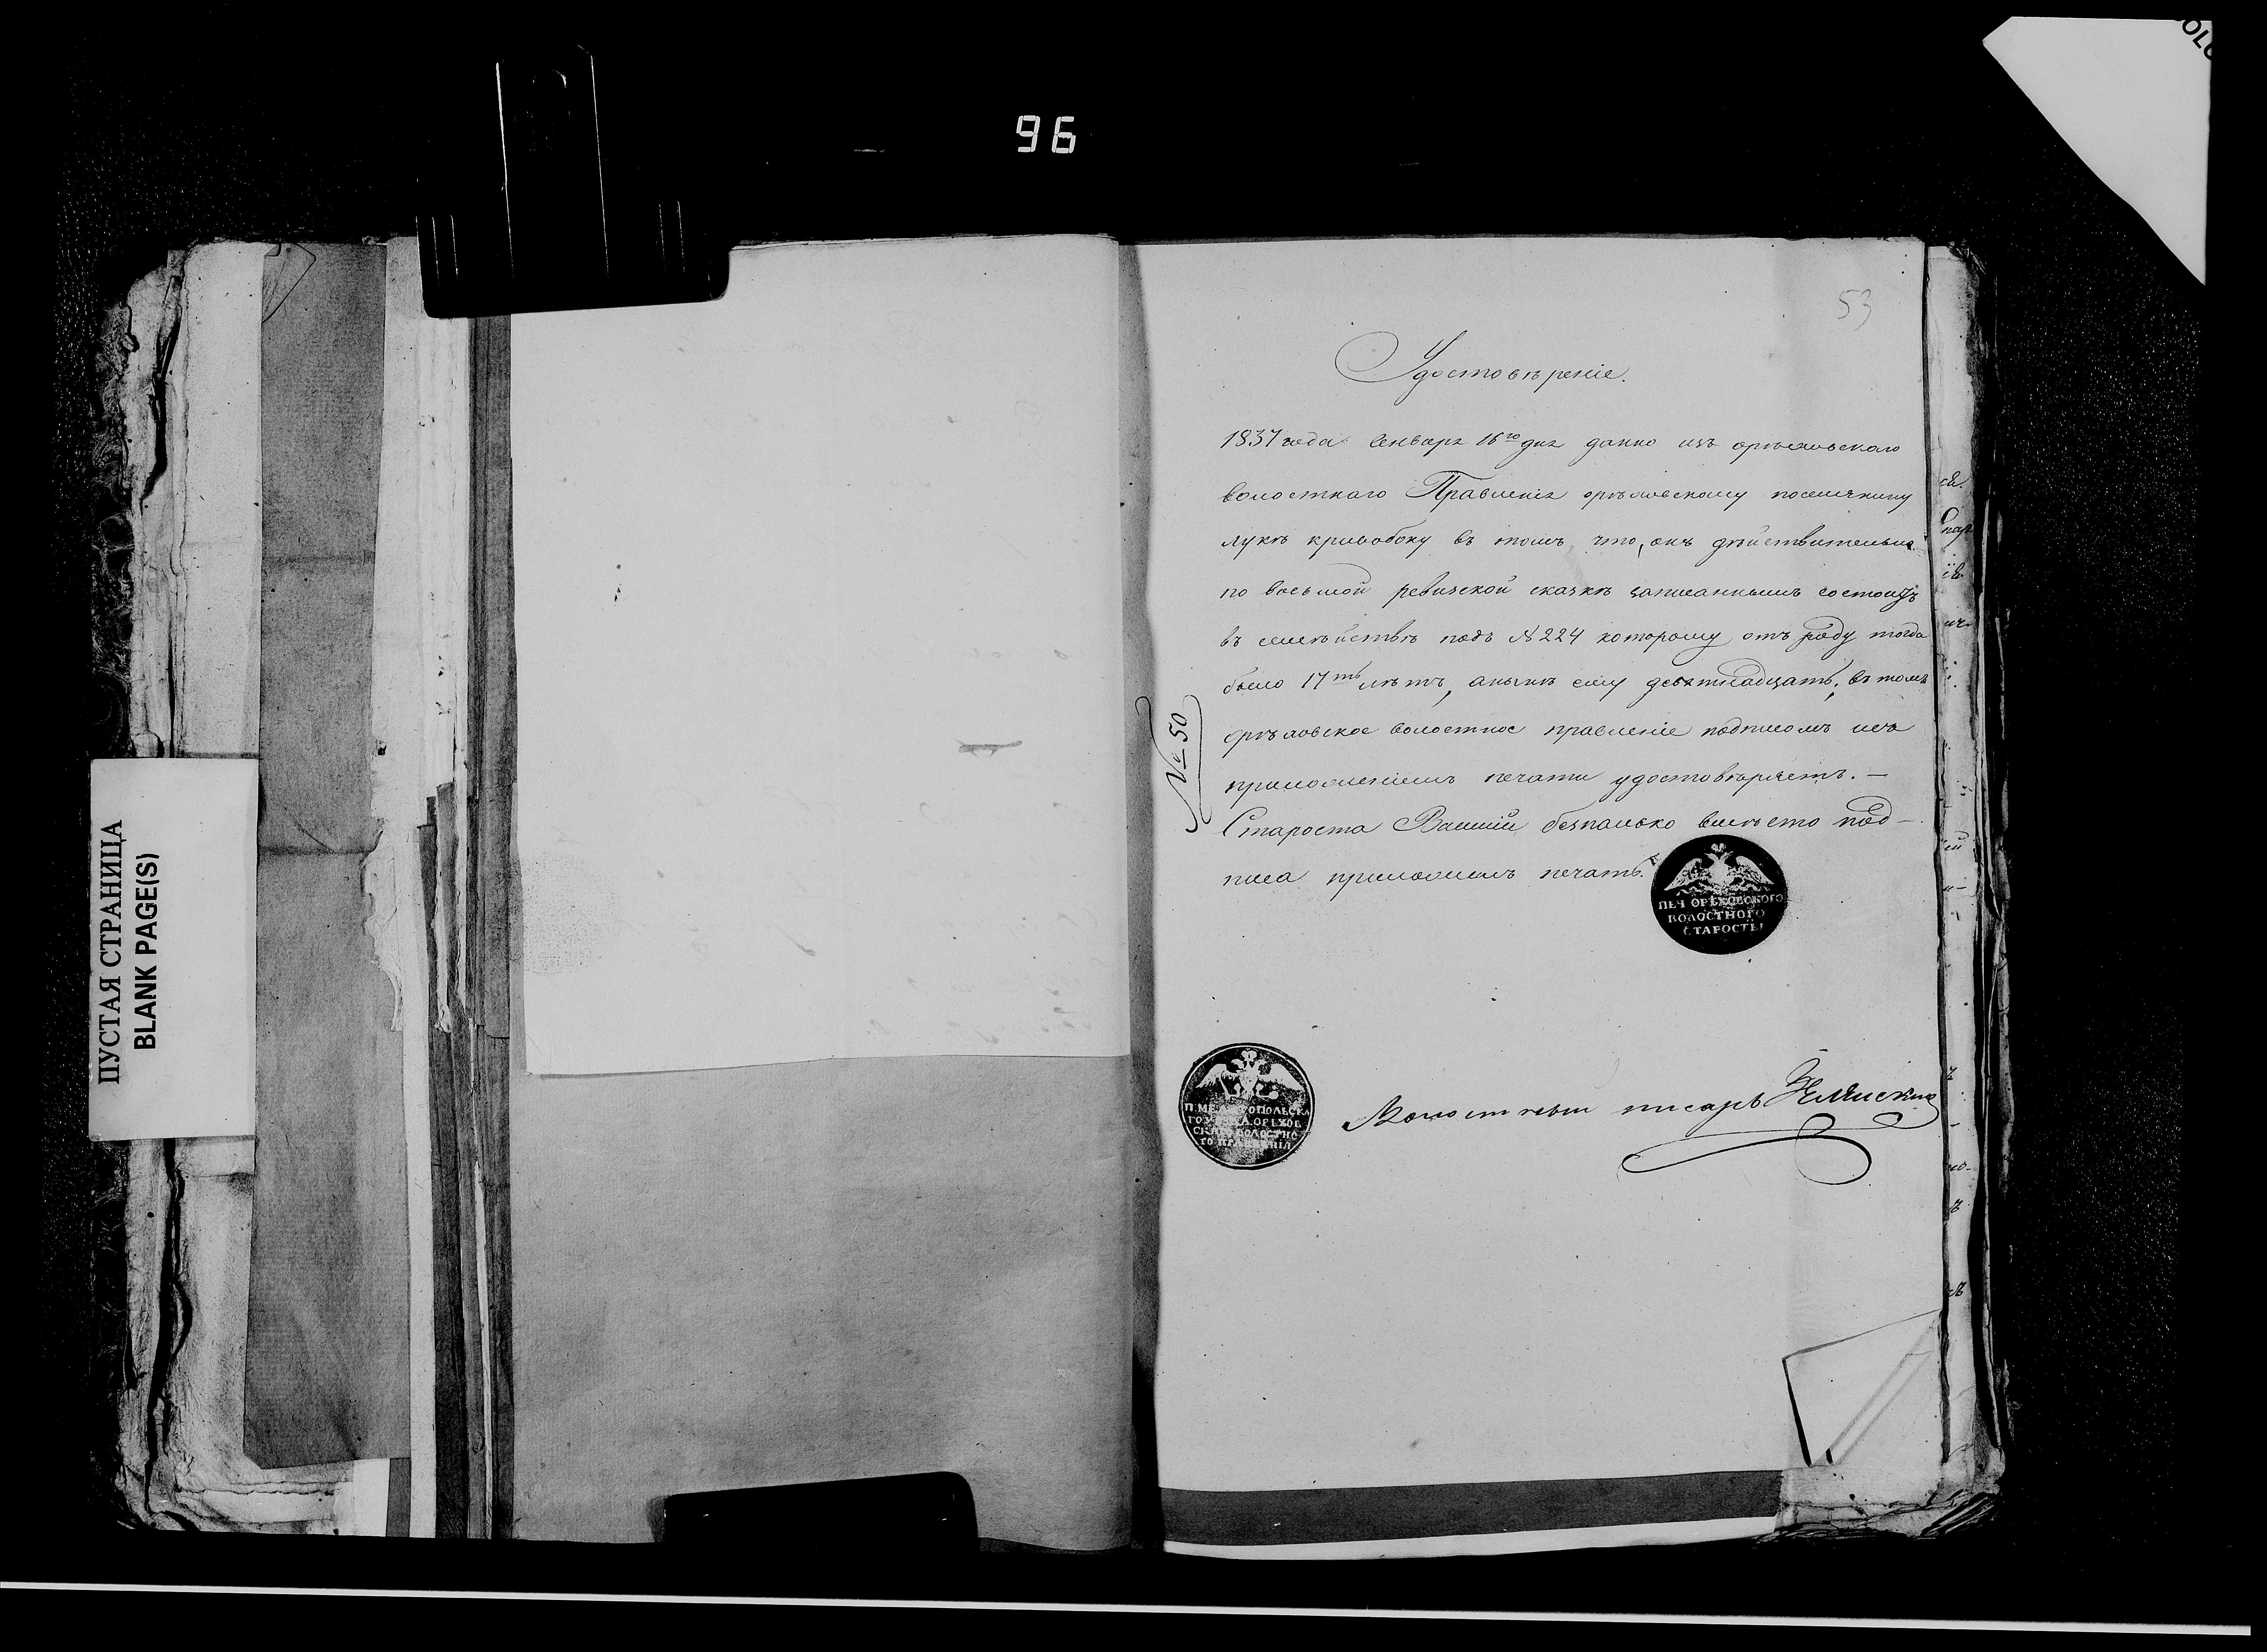 96
53
Удостовѣреніе.
1837 года Генваря 16го дня данно изъ орѣховскаго
волостнаго Правленія орѣховскому поселянину
лукѣ кривобоку въ томъ, что, онъ дѣйствительно
по восьмой ревизской сказкѣ записаннымъ состоитъ
въ семѣйствѣ подъ № 224 которому отъ роду тогда
было 17ть лѣтъ, анынѣ ему девятнадцать, въ томъ
орѣховское волостное правленіе подписомъ исъ
приложеніемъ печати удостовѣряетъ. —
Староста безпалько вмѣсто под-
писа приложилъ печать.
№ 50
ПЕЧ ОРѢХОВСКОГО
ВОЛОСТНОГО
СТАРОСТЫ
П. МЕЛИТОПОЛЬСКА
ГО УѢЗДА ОРѢХОВ
СКАГО ВОЛОСТНО
ГО ПРАВЛЕНІЯ
Волостный писарь
ПУСТАЯ СТРАНИЦА
BLANK PAGE(S)